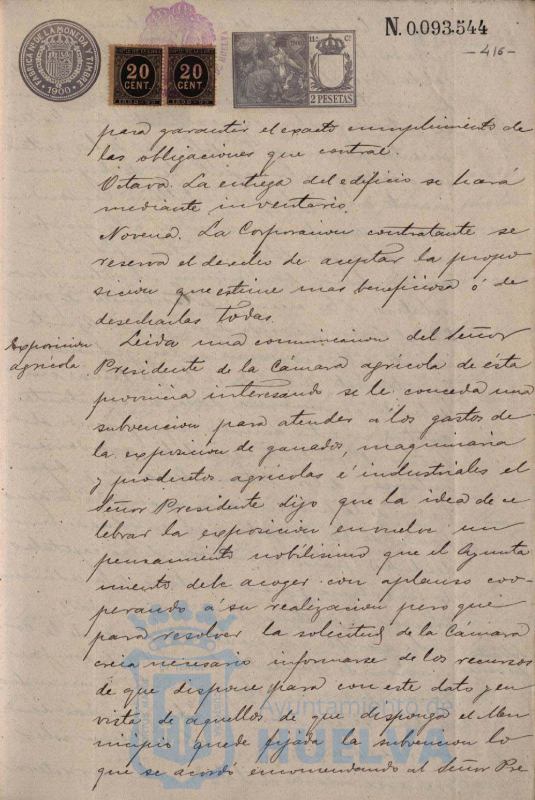 N. 0.093.544
- 416 -
FABRICA NAL DE LA MONEDA Y TIMBRE
1900
20 CENT.
20 CENT.
11.a C.
2 PESETAS
para garantir el exacto cumplimiento de
las obligaciones que contrae.
Octava. La entrega del edificio se hará
mediante inventario.
Novena. La Corporacion contratante se
reserva el derecho de aceptar la propo
sicion que estime mas beneficiosa ó de
desecharlas todas.
Exposicion
agrícola.
Leida una comunicacion del Señor
Presidente de la Cámara agrícola de ésta
provincia interesando se le conceda una
subvencion para atender á los gastos de
la exposicion de ganados, maquinaria
y productos agrícolas é industriales el
Señor Presidente dijo que la idea de ce
lebrar la exposicion envuelve un
pensamiento nobilisimo que el Ayunta
miento debe acoger con aplauso coo-
perando á su realizacion pero que
para resolver la solicitud de la Cámara
creia necesario informarse de los recursos
de que dispone para con este dato y en
vista de aquellos de que disponga el Mu
nicipio quede fijada la subvencion lo
que se acordó encomendando al Señor Pre
Ayuntamiento de
HUELVA